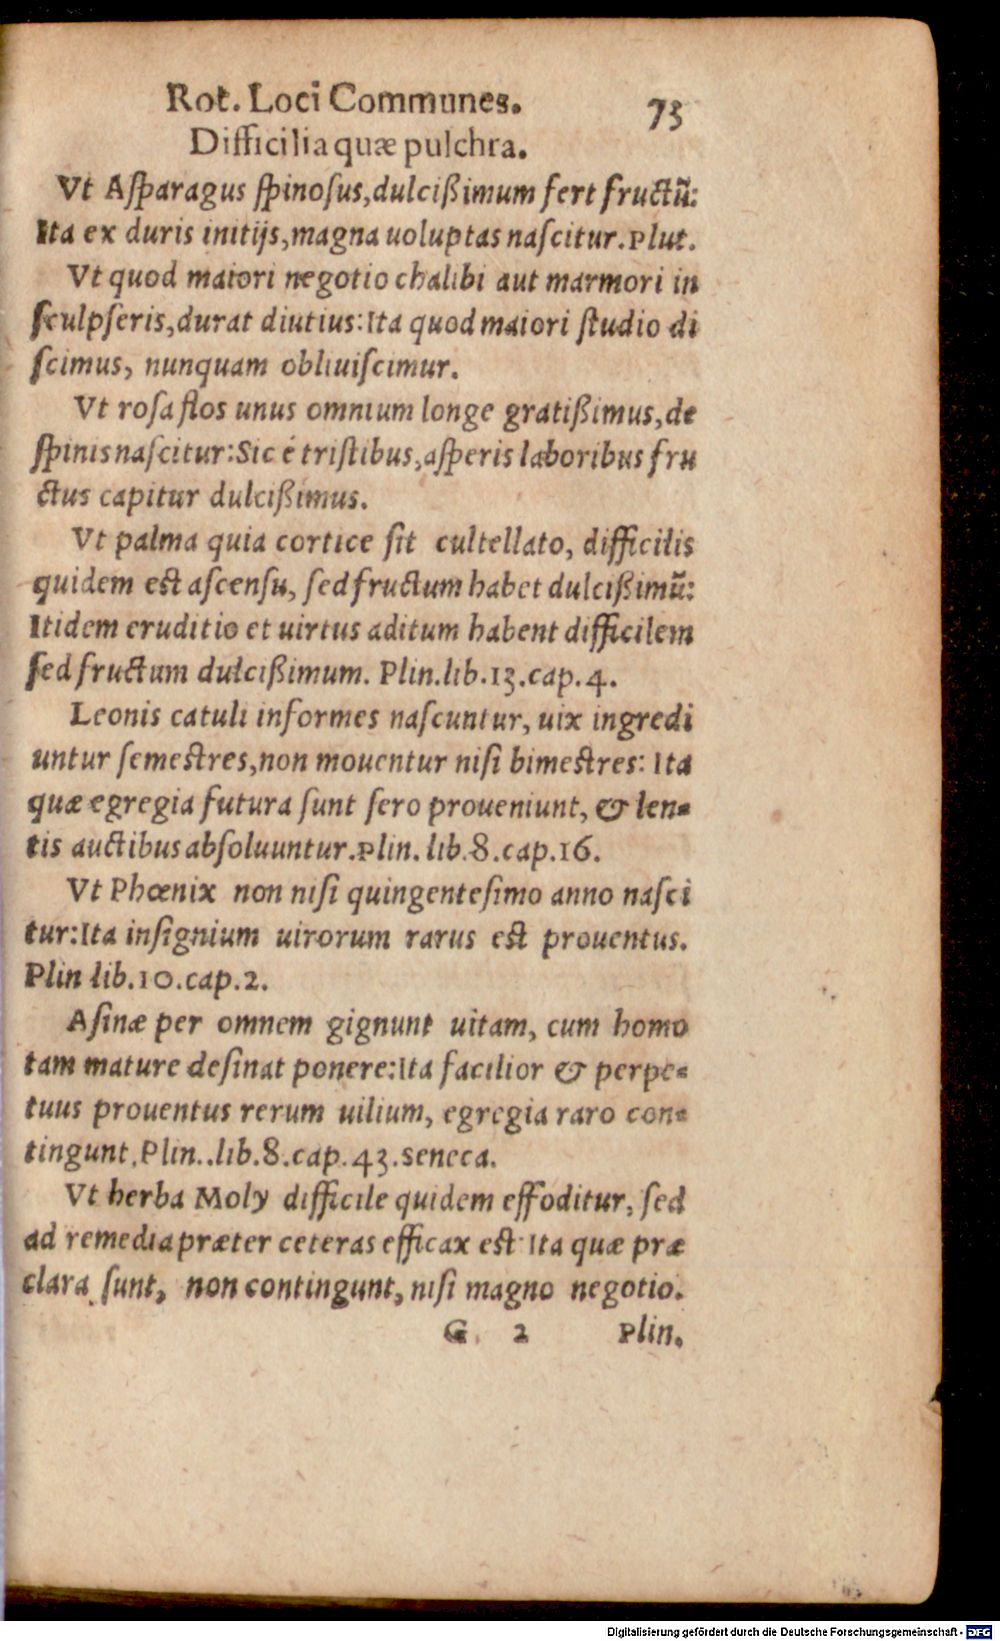 Rot. Loci Communes. 73
Difficilia quæ pulchra.
Vt Aſparagus ſpinoſus, dulcißimum fert fructũ:
Ita ex duris initijs, magna uoluptas naſcitur. Plut.
Vt quod maiori negotio chalibi aut marmori in
ſculpſeris, durat diutius: Ita quod maiori ſtudio di
ſcimus, nunquam obliuiſcimur.
Vt roſa flos unus omnium longe gratißimus, de
ſpinis naſcitur: Sic é triſtibus, aſperis laboribus fru
ctus capitur dulcißimus.
Vt palma quia cortice ſit cultellato, difficilis
quidem est aſcenſu, ſed fructum habet dulcißimũ:
Itidem eruditio et uirtus aditum habent difficilem
ſed fructum dulcißimum. Plin. lib. 13. cap. 4.
Leonis catuli informes naſcuntur, uix ingredi
untur ſemestres, non mouentur niſi bimestres: Ita
quæ egregia futura ſunt ſero proueniunt, & len-
tis auctibus abſoluuntur. Plin. lib. 8. cap. 16.
Vt Phœnix non niſi quingenteſimo anno naſci
tur: Ita inſignium uirorum rarus est prouentus.
Plin lib. 10. cap. 2.
Aſinæ per omnem gignunt uitam, cum homo
tam mature deſinat ponere: Ita facilior & perpe-
tuus prouentus rerum uilium, egregia raro con-
tingunt. Plin.. lib. 8. cap. 43. Seneca.
Vt herba Moly difficile quidem effoditur, ſed
ad remedia præter ceteras efficax est: Ita quæ præ
clara ſunt, non contingunt, niſi magno negotio.
G 2 Plin.
Digitalisierung gefördert durch die Deutsche Forschungsgemeinschaft - DFG